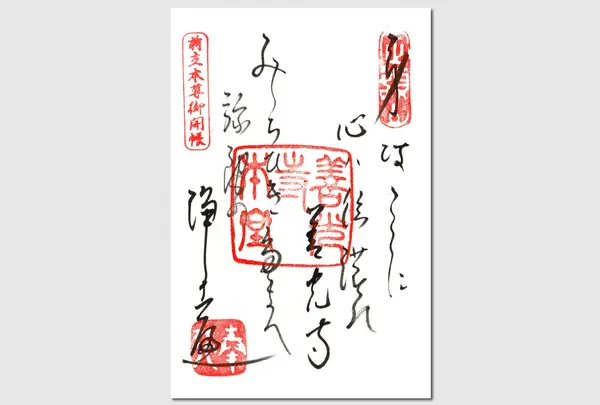 身はこゝに
心ハ信濃の
善光寺
みちびき給へ
弥陀の
浄土へ
善光寺本堂
前立本尊御開帳